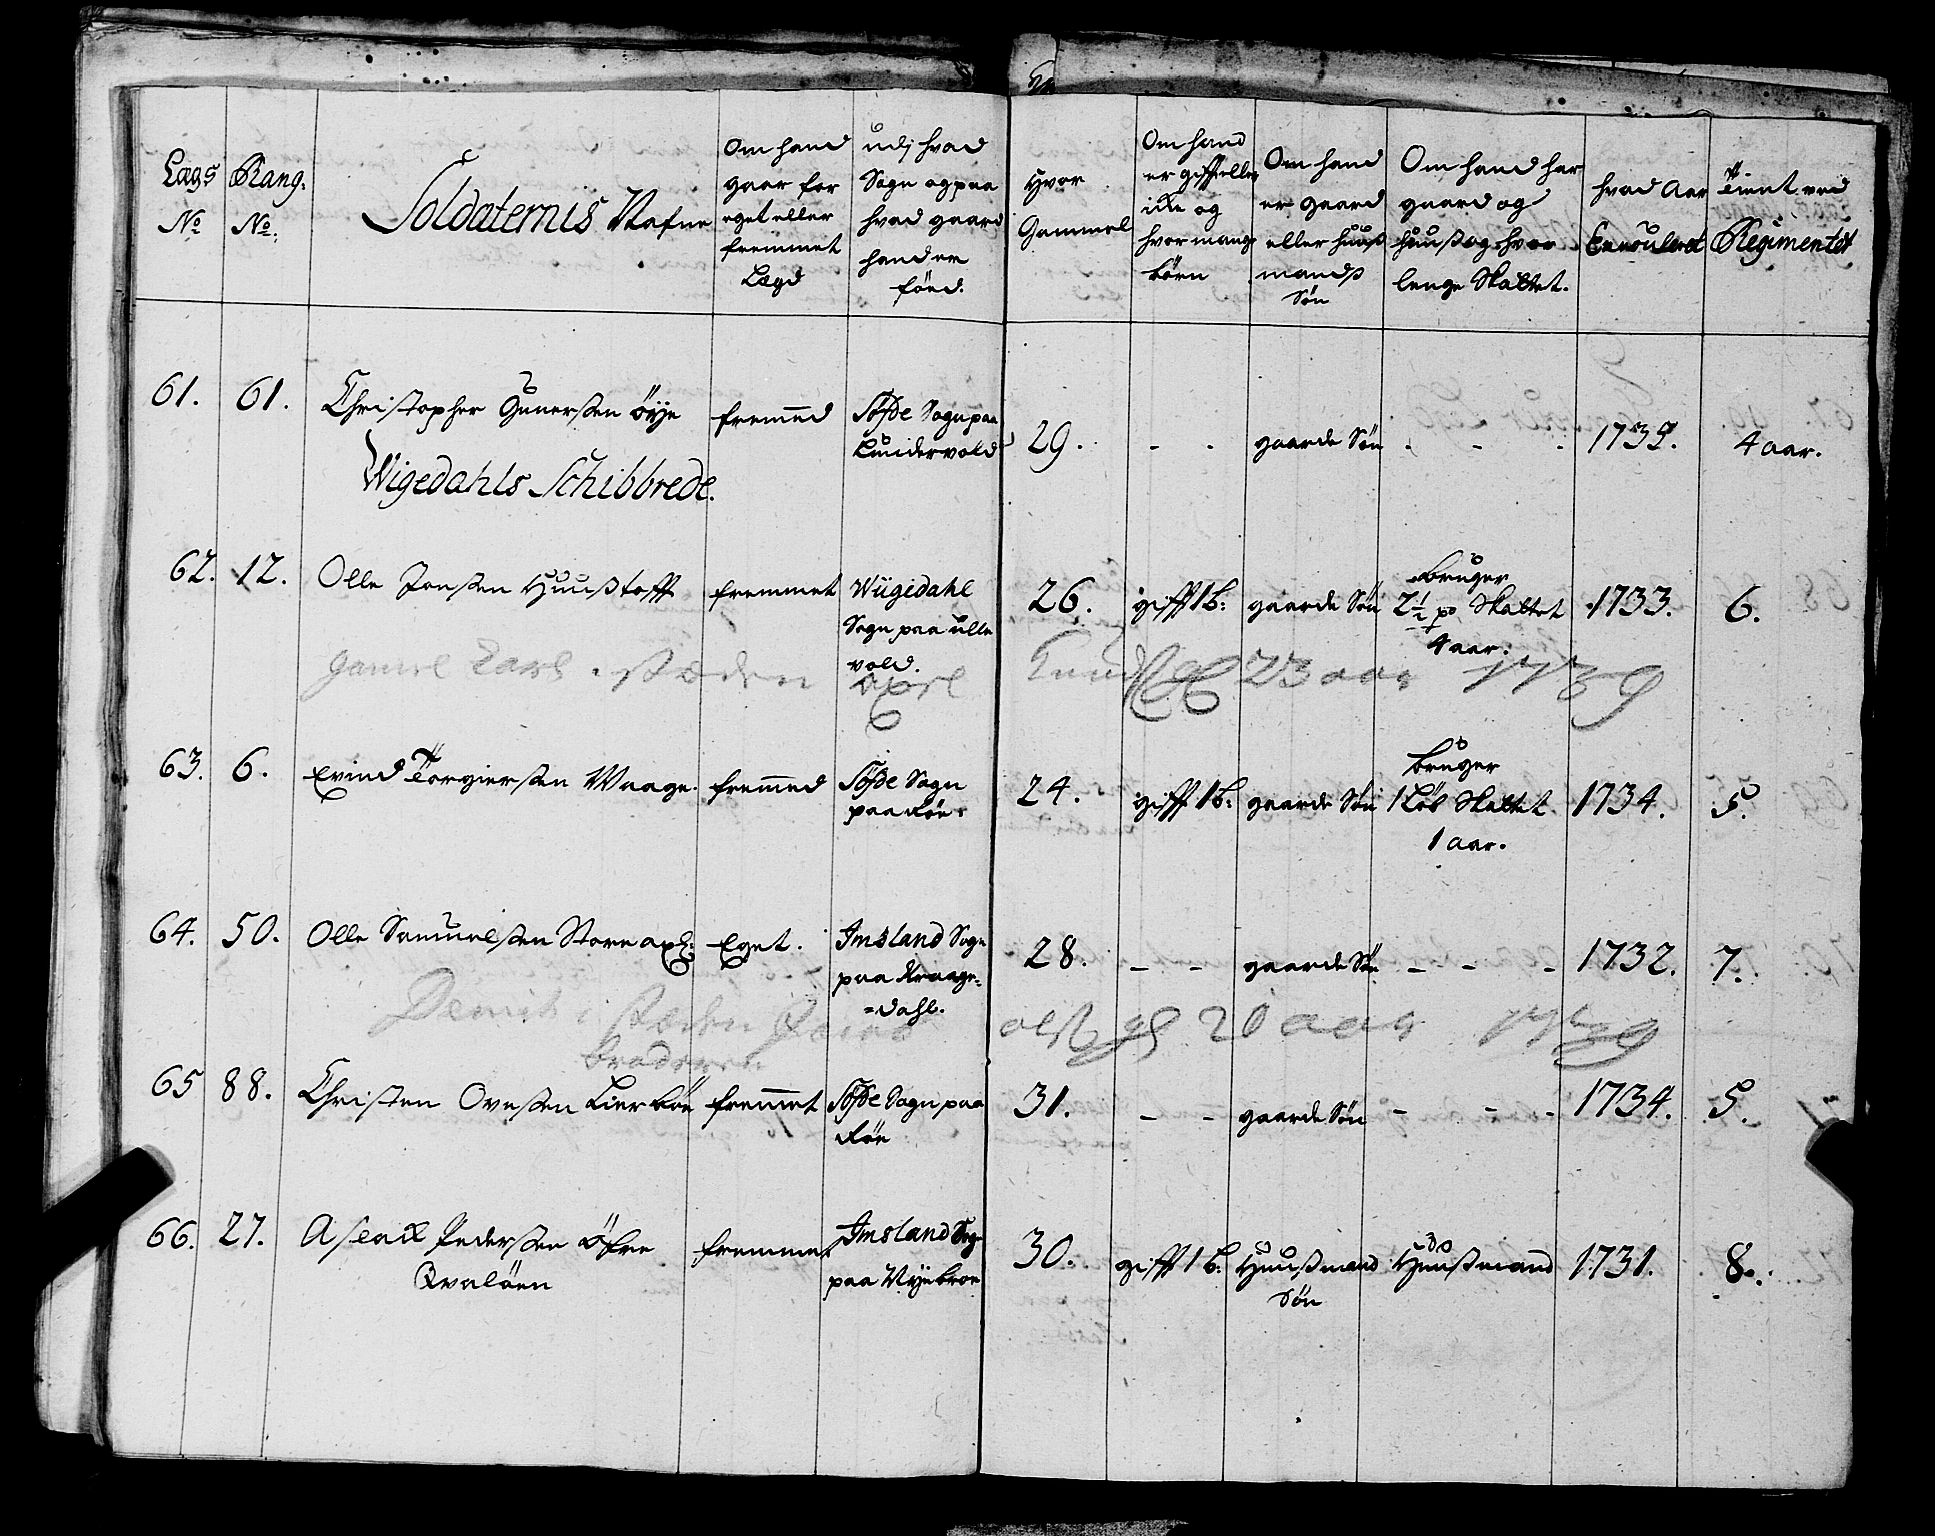 Lægs No
Rang: No:
Soldaternis Nafne
Om hand gaar for eget eller fremmet Lægd
udj hvad Sogn og paa hvad gaard hand er föed.
Hvor Gammel
Om hand er gift eller icke og hvor mange börn
Om hand er gaard eller huuß mandß Sön
Om hand har gaard og huuß og hvor lenge Skattet.
hvad Aar Enroulleret
Tient ved Regimentet
61. 61. Christopher Gunerßen Öÿe fremmed Söfde Sogn paa Lundervold 29. - - gaarde Sön - - - 1735. 4 aar.
Wigedahls Schibbrede.
62. 12. Olle Jonßen Huußtofft fremmet Wiigedahl Sogn paa ulle vold. 26. gifft 1 b: gaarde Sön bruger 2½ po Skattet 4 aar. 1733. 6.
i stæden Knud 23 aar 1739
63. 6. Evind Torgierßen Waage. fremmed Söfde Sogn paa Röe: 24. gifft 1 b: gaarde Sön bruger 1 Löb Skattet 1 aar. 1734. 5.
64. 50. Olle Samuelßen Store axel: Eget. Imsland Sogn paa Kraage=dahl. 28. - - gaarde Sön - - - 1732. 7.
i stæden olß gl 20 aar 1739
broderen
65 88. Christen Oveßen Lierböe fremmet Söfde Sogn paa Röe 31. - - gaarde Sön - - - 1734. 5.
66. 27. Aslack Pederßen Öfre Qvalöen fremmet Imsland Sogn paa 30. gifft 1 b. Huußmand Sön Huußmand 1731. 8.